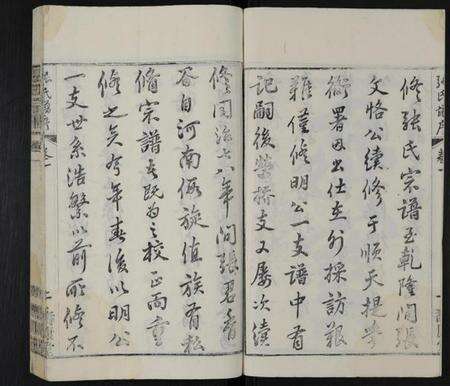 張氏譜序 卷一
修張氏宗譜至乾隆間張
文恪公續修于順天提學
衙署因出仕在外採訪艱
難僅修明公一支譜中有
記嗣後榮掞支又屢次續
修同治七八年間張君香
谷自河南假旋值族有私
脩宗譜者既為之校正而重
修之矣今年春復以明公
一支世系浩繁從前所修不